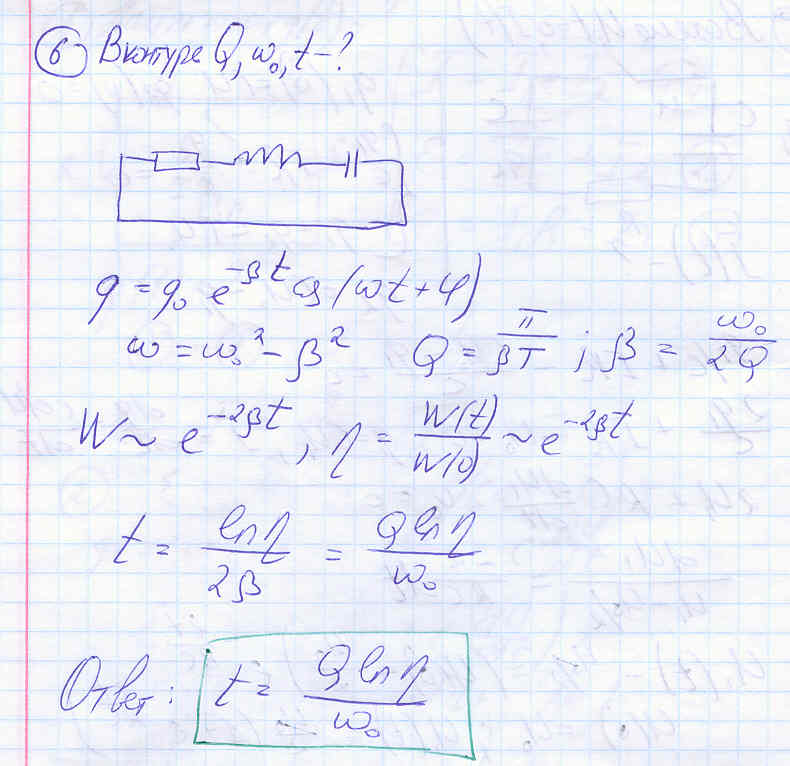 6 В контуре Q, ω₀, t - ?
q = q₀ e^{-βt} cos (ωt + φ)
ω = ω₀² - β² Q = π/βT ; β = ω₀/2Q
W ~ e^{-2βt}, η = W(t)/W(0) ~ e^{-2βt}
t = ln η/2β = Q ln η/ω₀
Ответ: t = Q ln η/ω₀